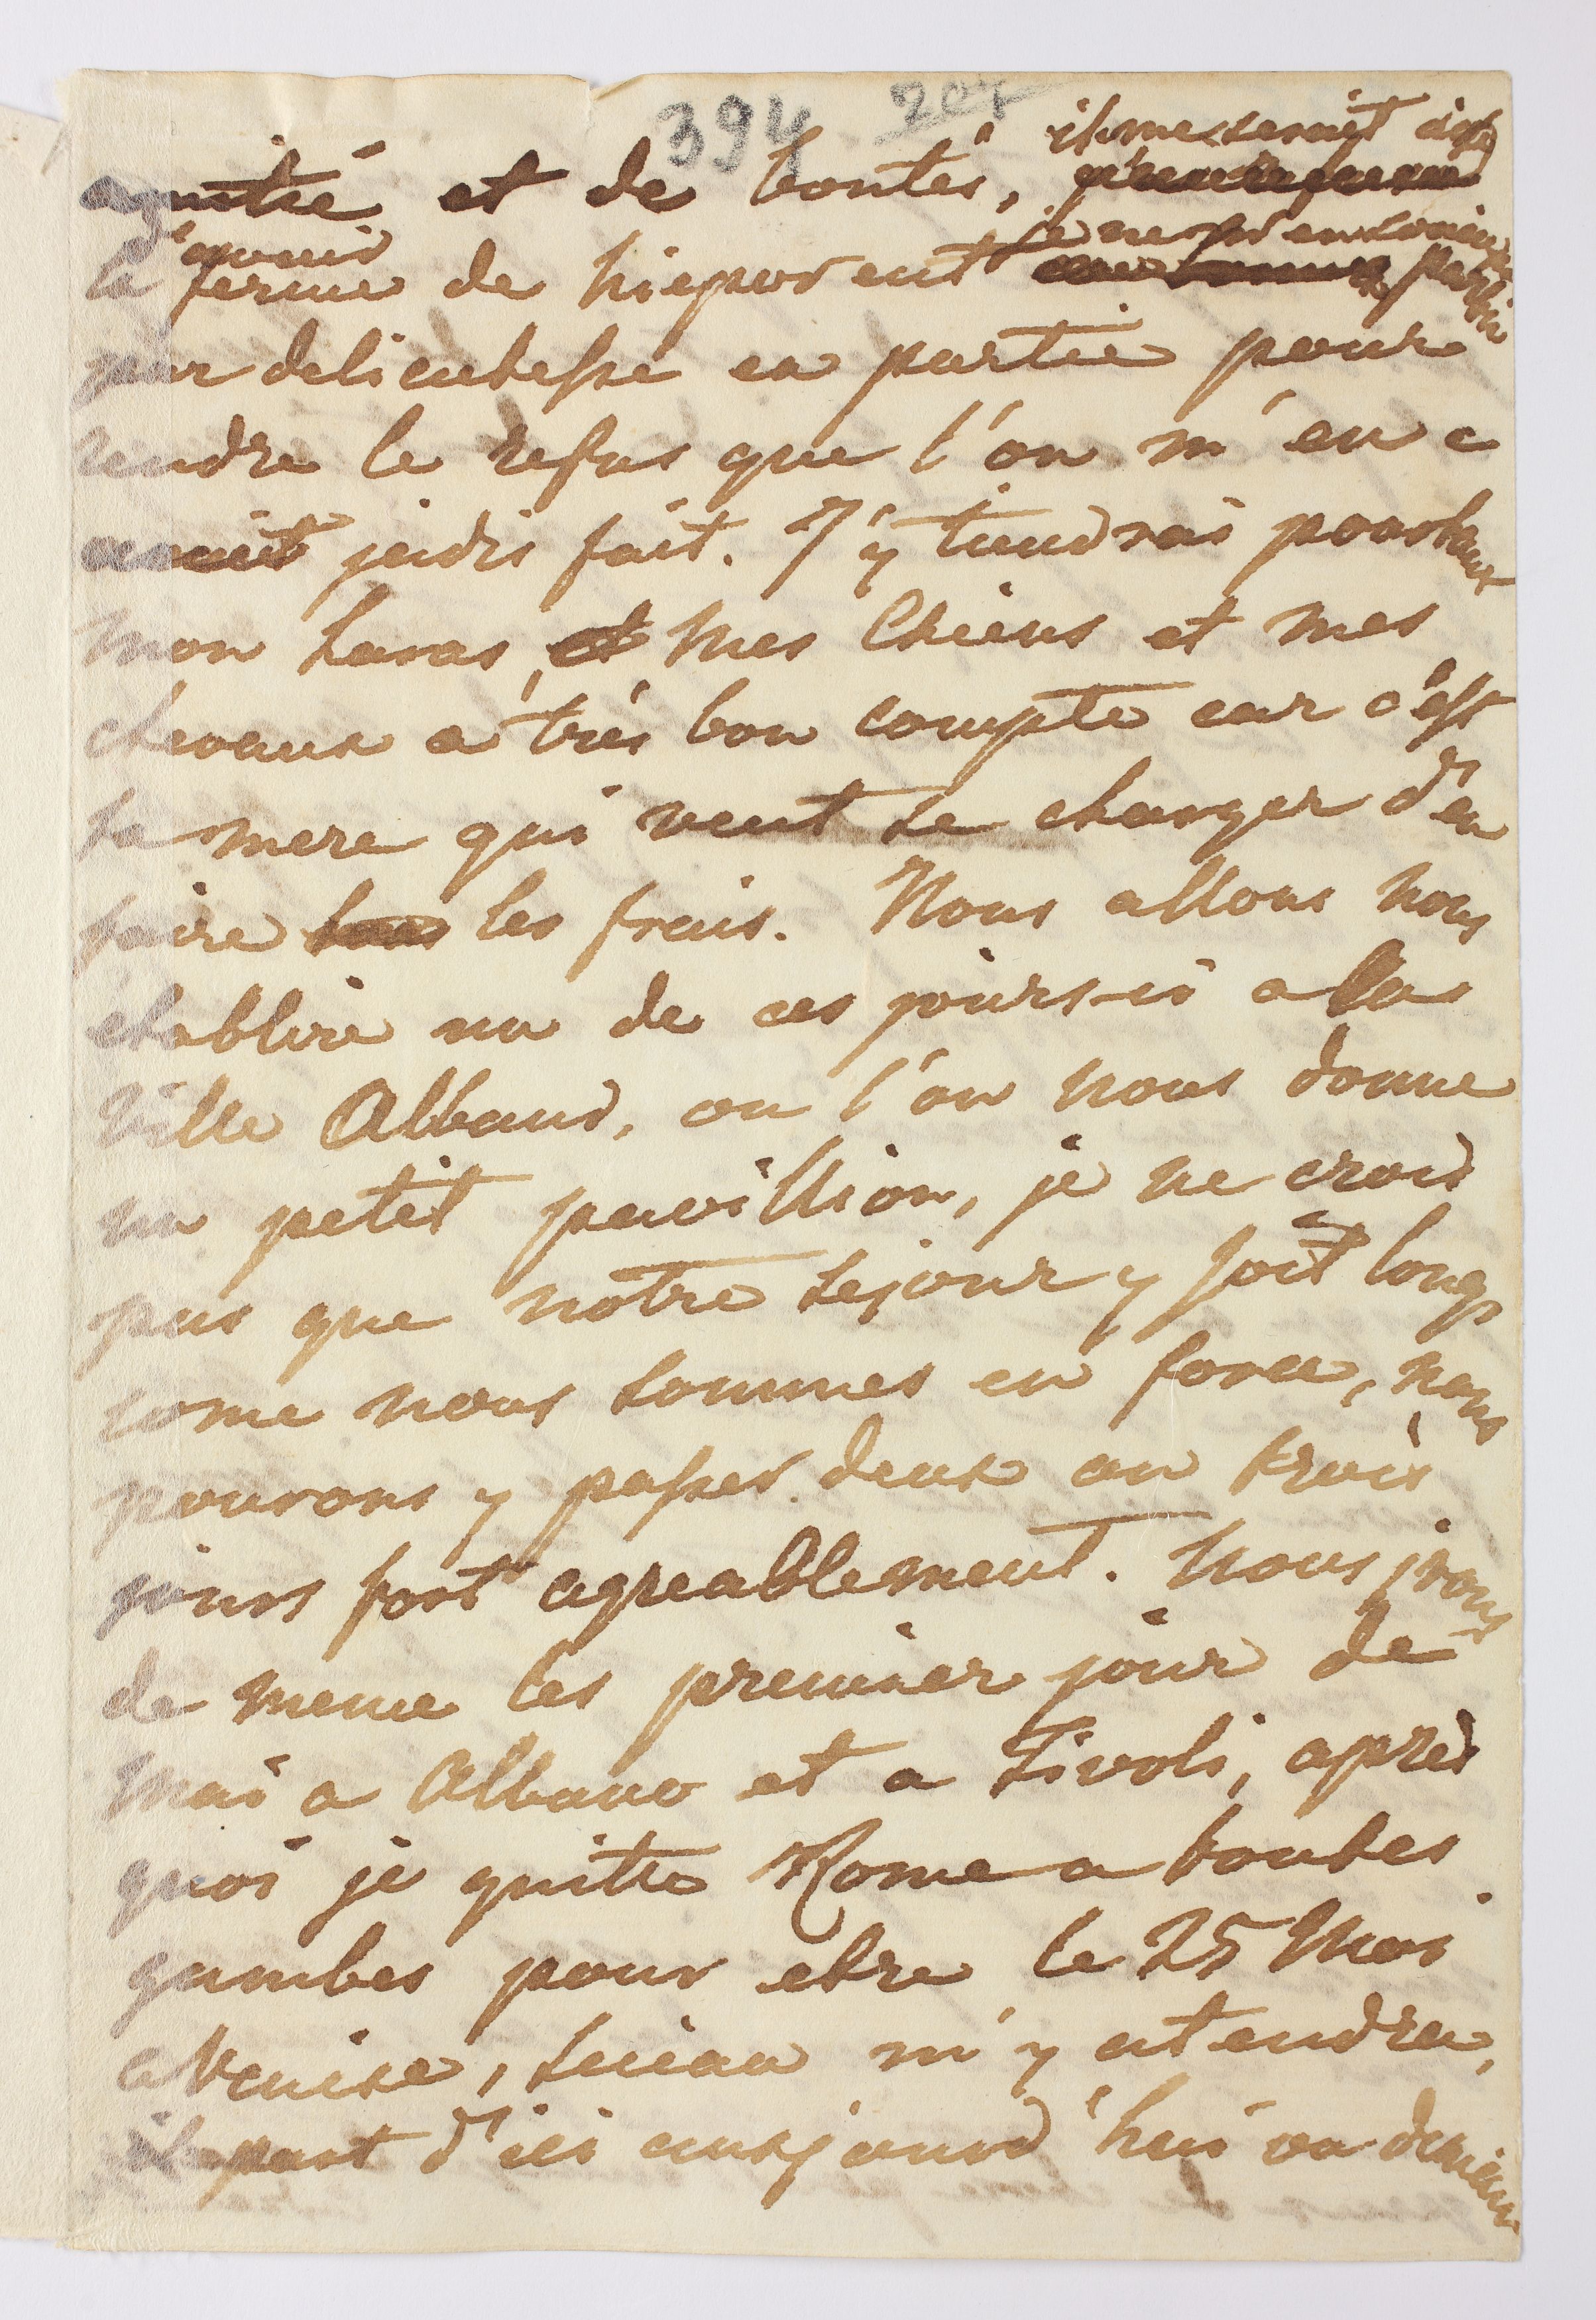 394
il me serait aisé
amitié et de bontés,
d'avoir je ne m'en soucie
la ferme de parce
par delicatesse en partie pour
rendre le refus que l'on m'en a
avait jadis fait. J'y tiendrai pourtant
mon haras, et mes Chiens et mes
chevaux a très bon compte car c'est
sa mere qui veut se charger d'en
faire tous les frais. Nous allons nous
etablire un de ces jours-ci a la
Ville Albani, ou l'on nous donne
un petit pavillion, je ne crois
pas que notre sejour y soit long
come nous sommes en force, nous
pourons y passer deux ou trois
jours fort agreablement. Nous irons
de meme les premier jour de
Mai a Albano et a Tivoli, après
quoi je quitte Rome a toutes
gambes pour etre le 25 Mai
a Venise, m'y attendra,
il part d'ici aujourd'hui ou demain